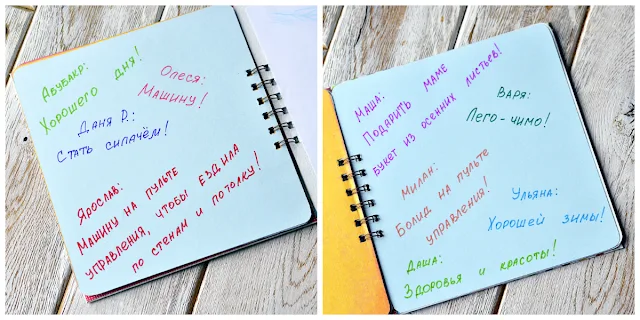 Абубакр:
Хорошего дня!
Олеся:
Машину!
Даня Р.:
Стать силачём!
Ярослав:
Машину на пульте
управления, чтобы ездила
по стенам и потолку!
Маша:
Подарить маме
букет из осенних листьев!
Варя:
Лего-чимо!
Милан:
Болид на пульте
управления!
Ульяна:
Хорошей зимы!
Даша:
Здоровья и красоты!